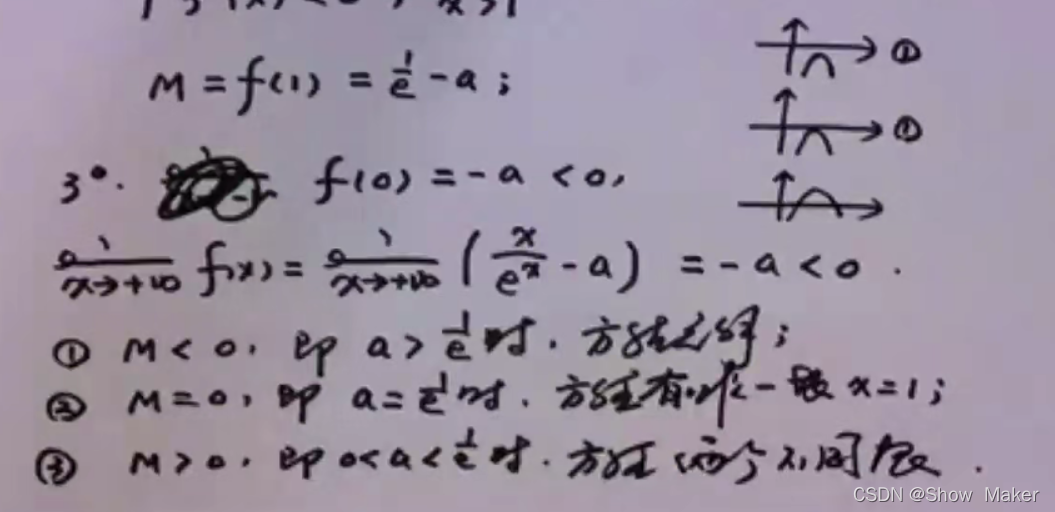 f'(x) < 0, x > 1
M = f(1) = 1/e - a ;
①
①
3°. f(0) = -a < 0,
lim x→+∞ f(x) = lim x→+∞ ( x/e^x - a ) = -a < 0 .
① M < 0, 即 a > 1/e 时. 方程无解;
② M = 0, 即 a = 1/e 时. 方程有唯一根 x = 1;
③ M > 0, 即 0 < a < 1/e 时. 方程两个不同根.
CSDN @Show Maker